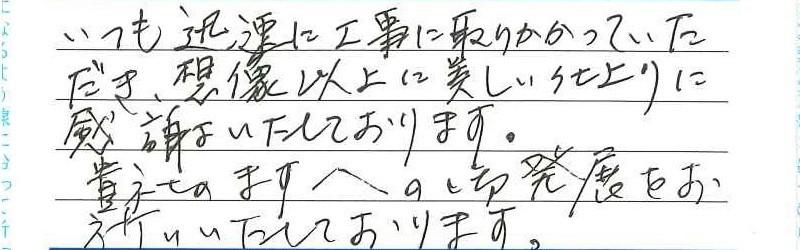 いつも迅速に工事に取りかかっていた
だき、想像以上に美しい仕上りに
感謝いたしております。
貴社のます〱の御発展をお
祈りいたしております。